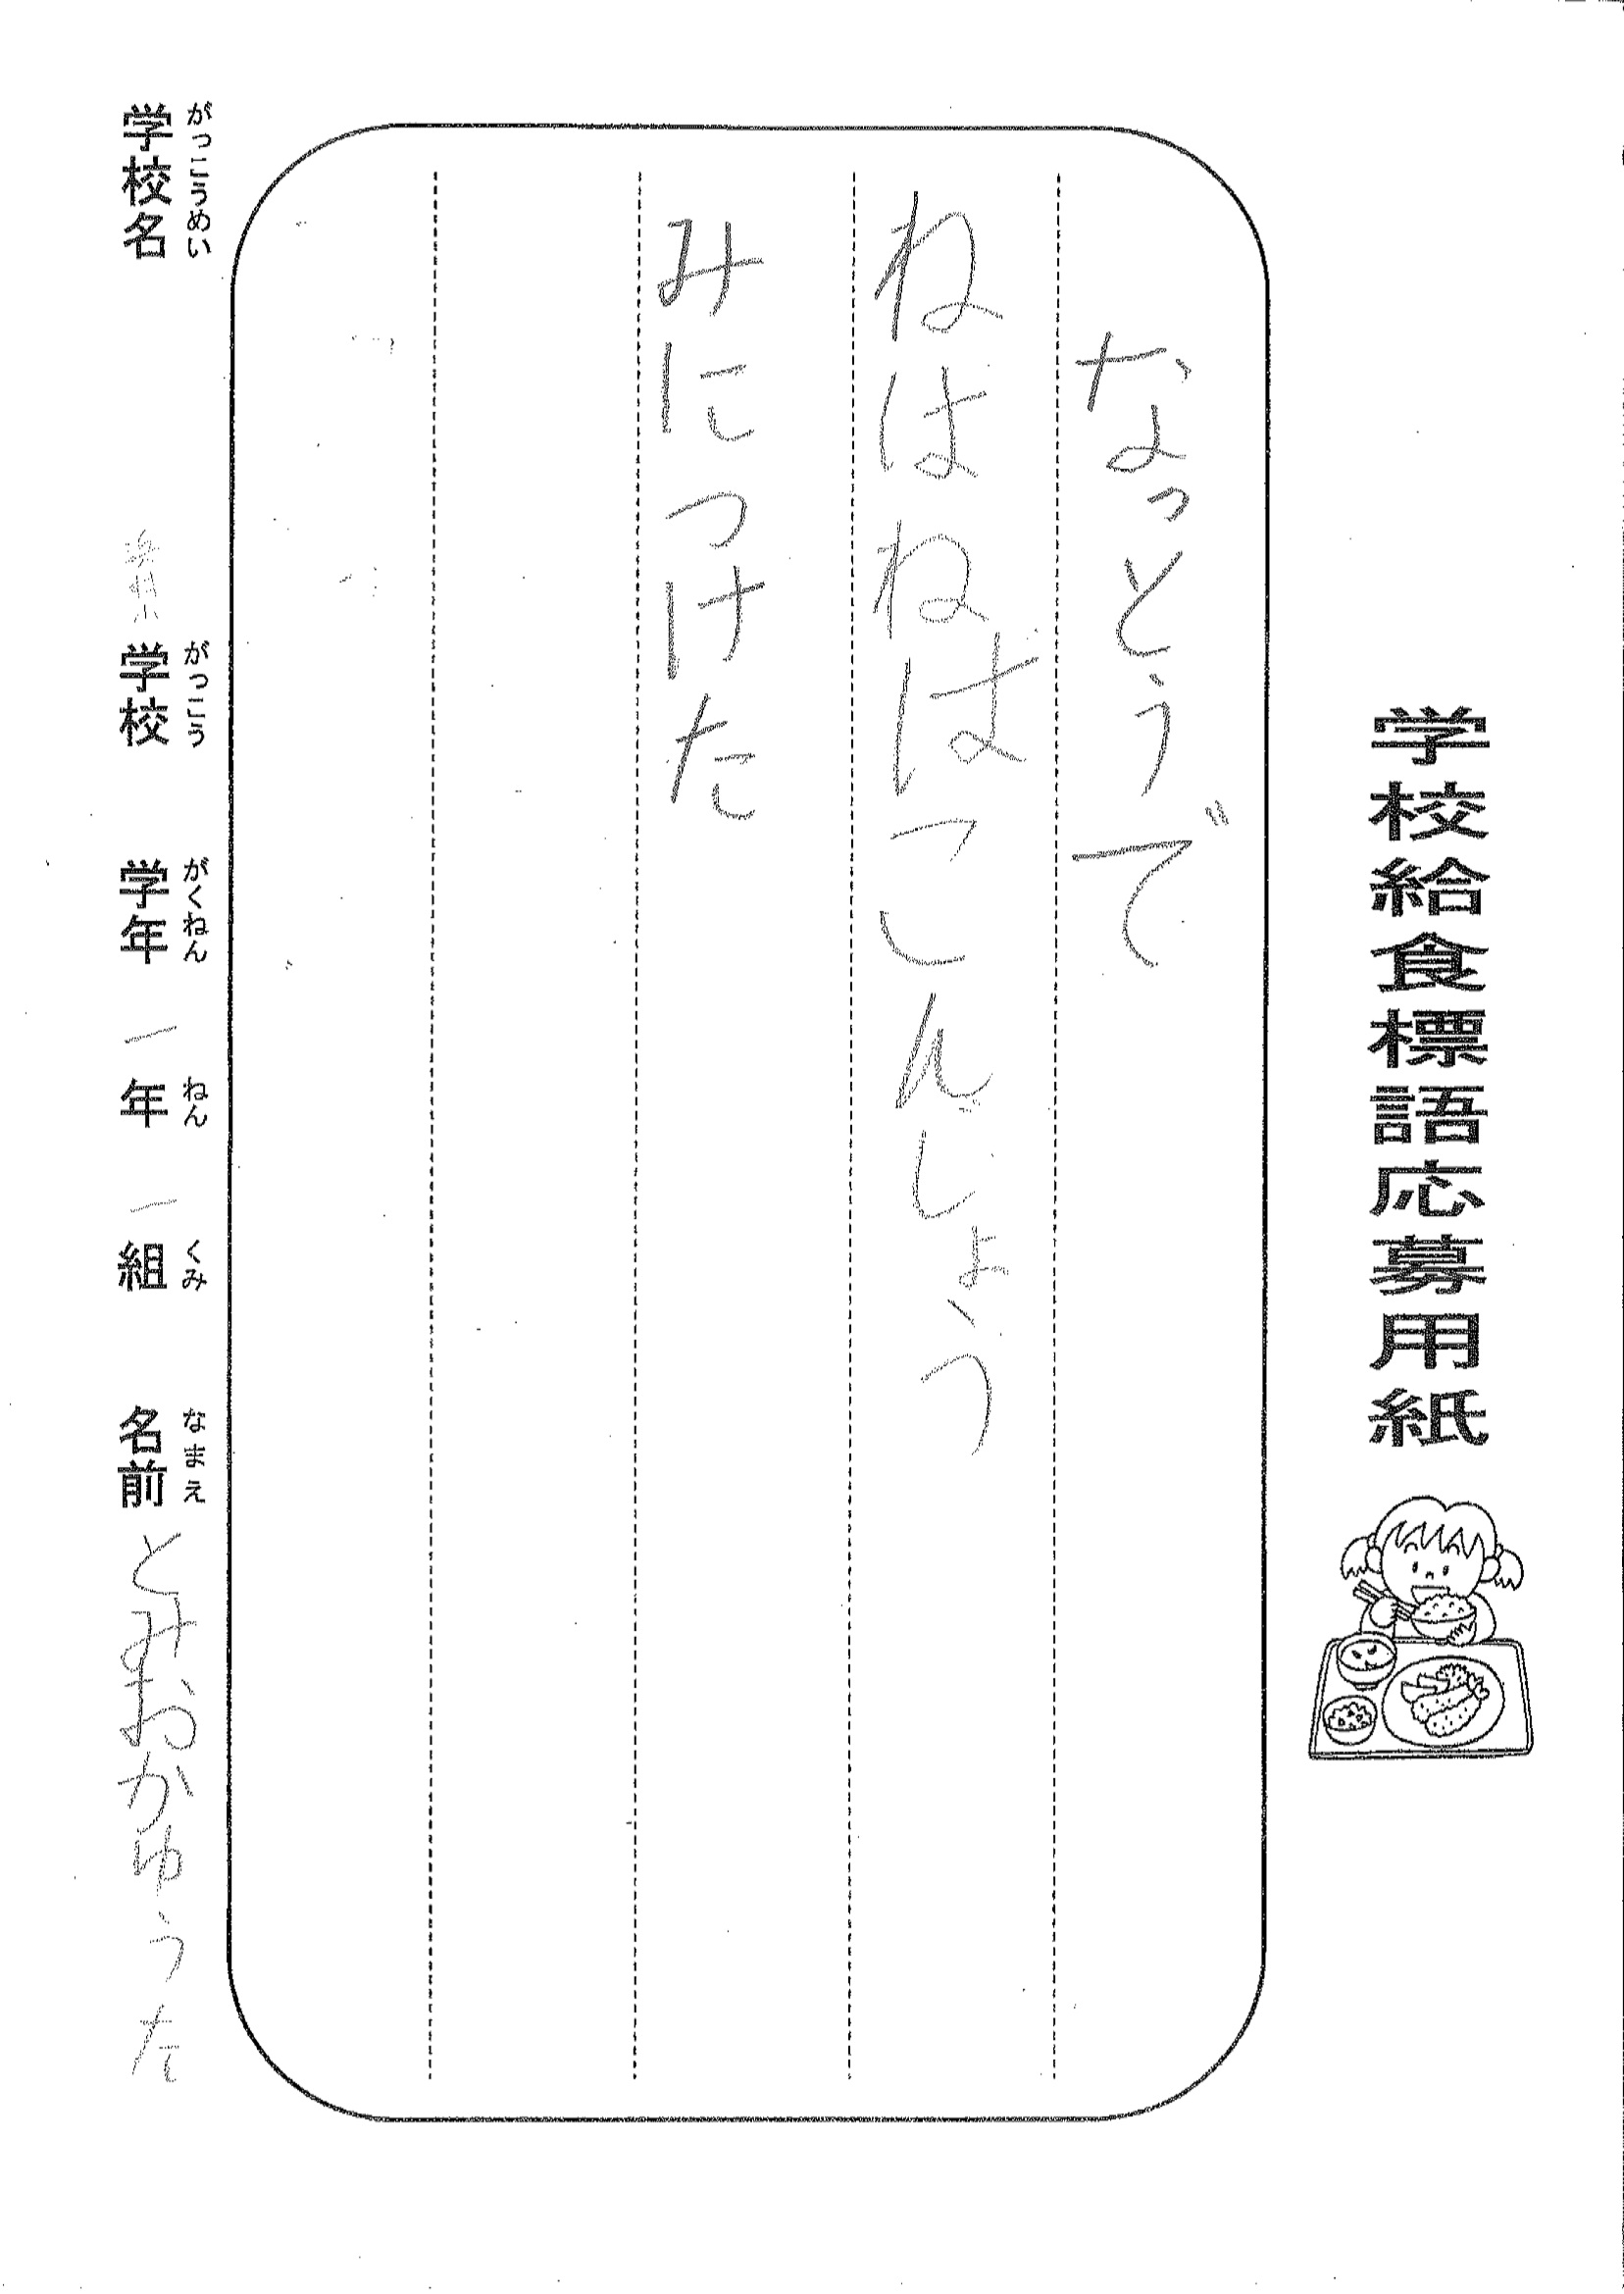 学校給食標語応募用紙
なっとうで
ねばねばこんじょう
みにつけた
がっこうめい がっこう がくねん ねん くみ なまえ
学校名 浜村小学校 学年 一年 一組 名前 とみおかゆうた